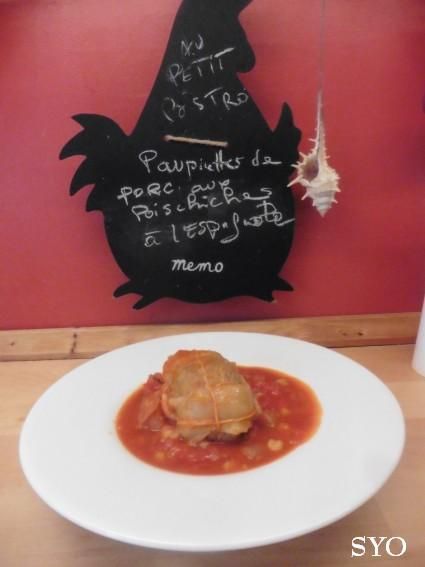 AU
PETIT
BISTRO
Paupiettes de
PORC aux
Poischiches
à l'Espagnole
memo
SYO